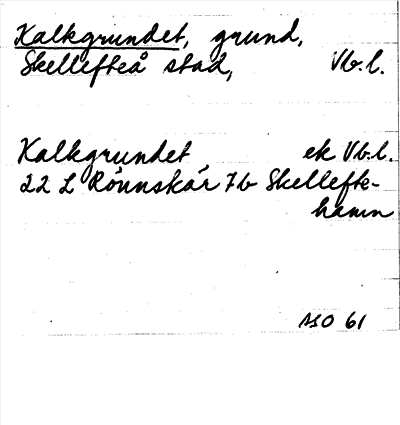 Kalkgrundet, grund,
Skellefteå stad, Vb.l.
Kalkgrundet ek Vb.l.
22 L Rönnskär 7b Skellefte-
hamn
ASO 61